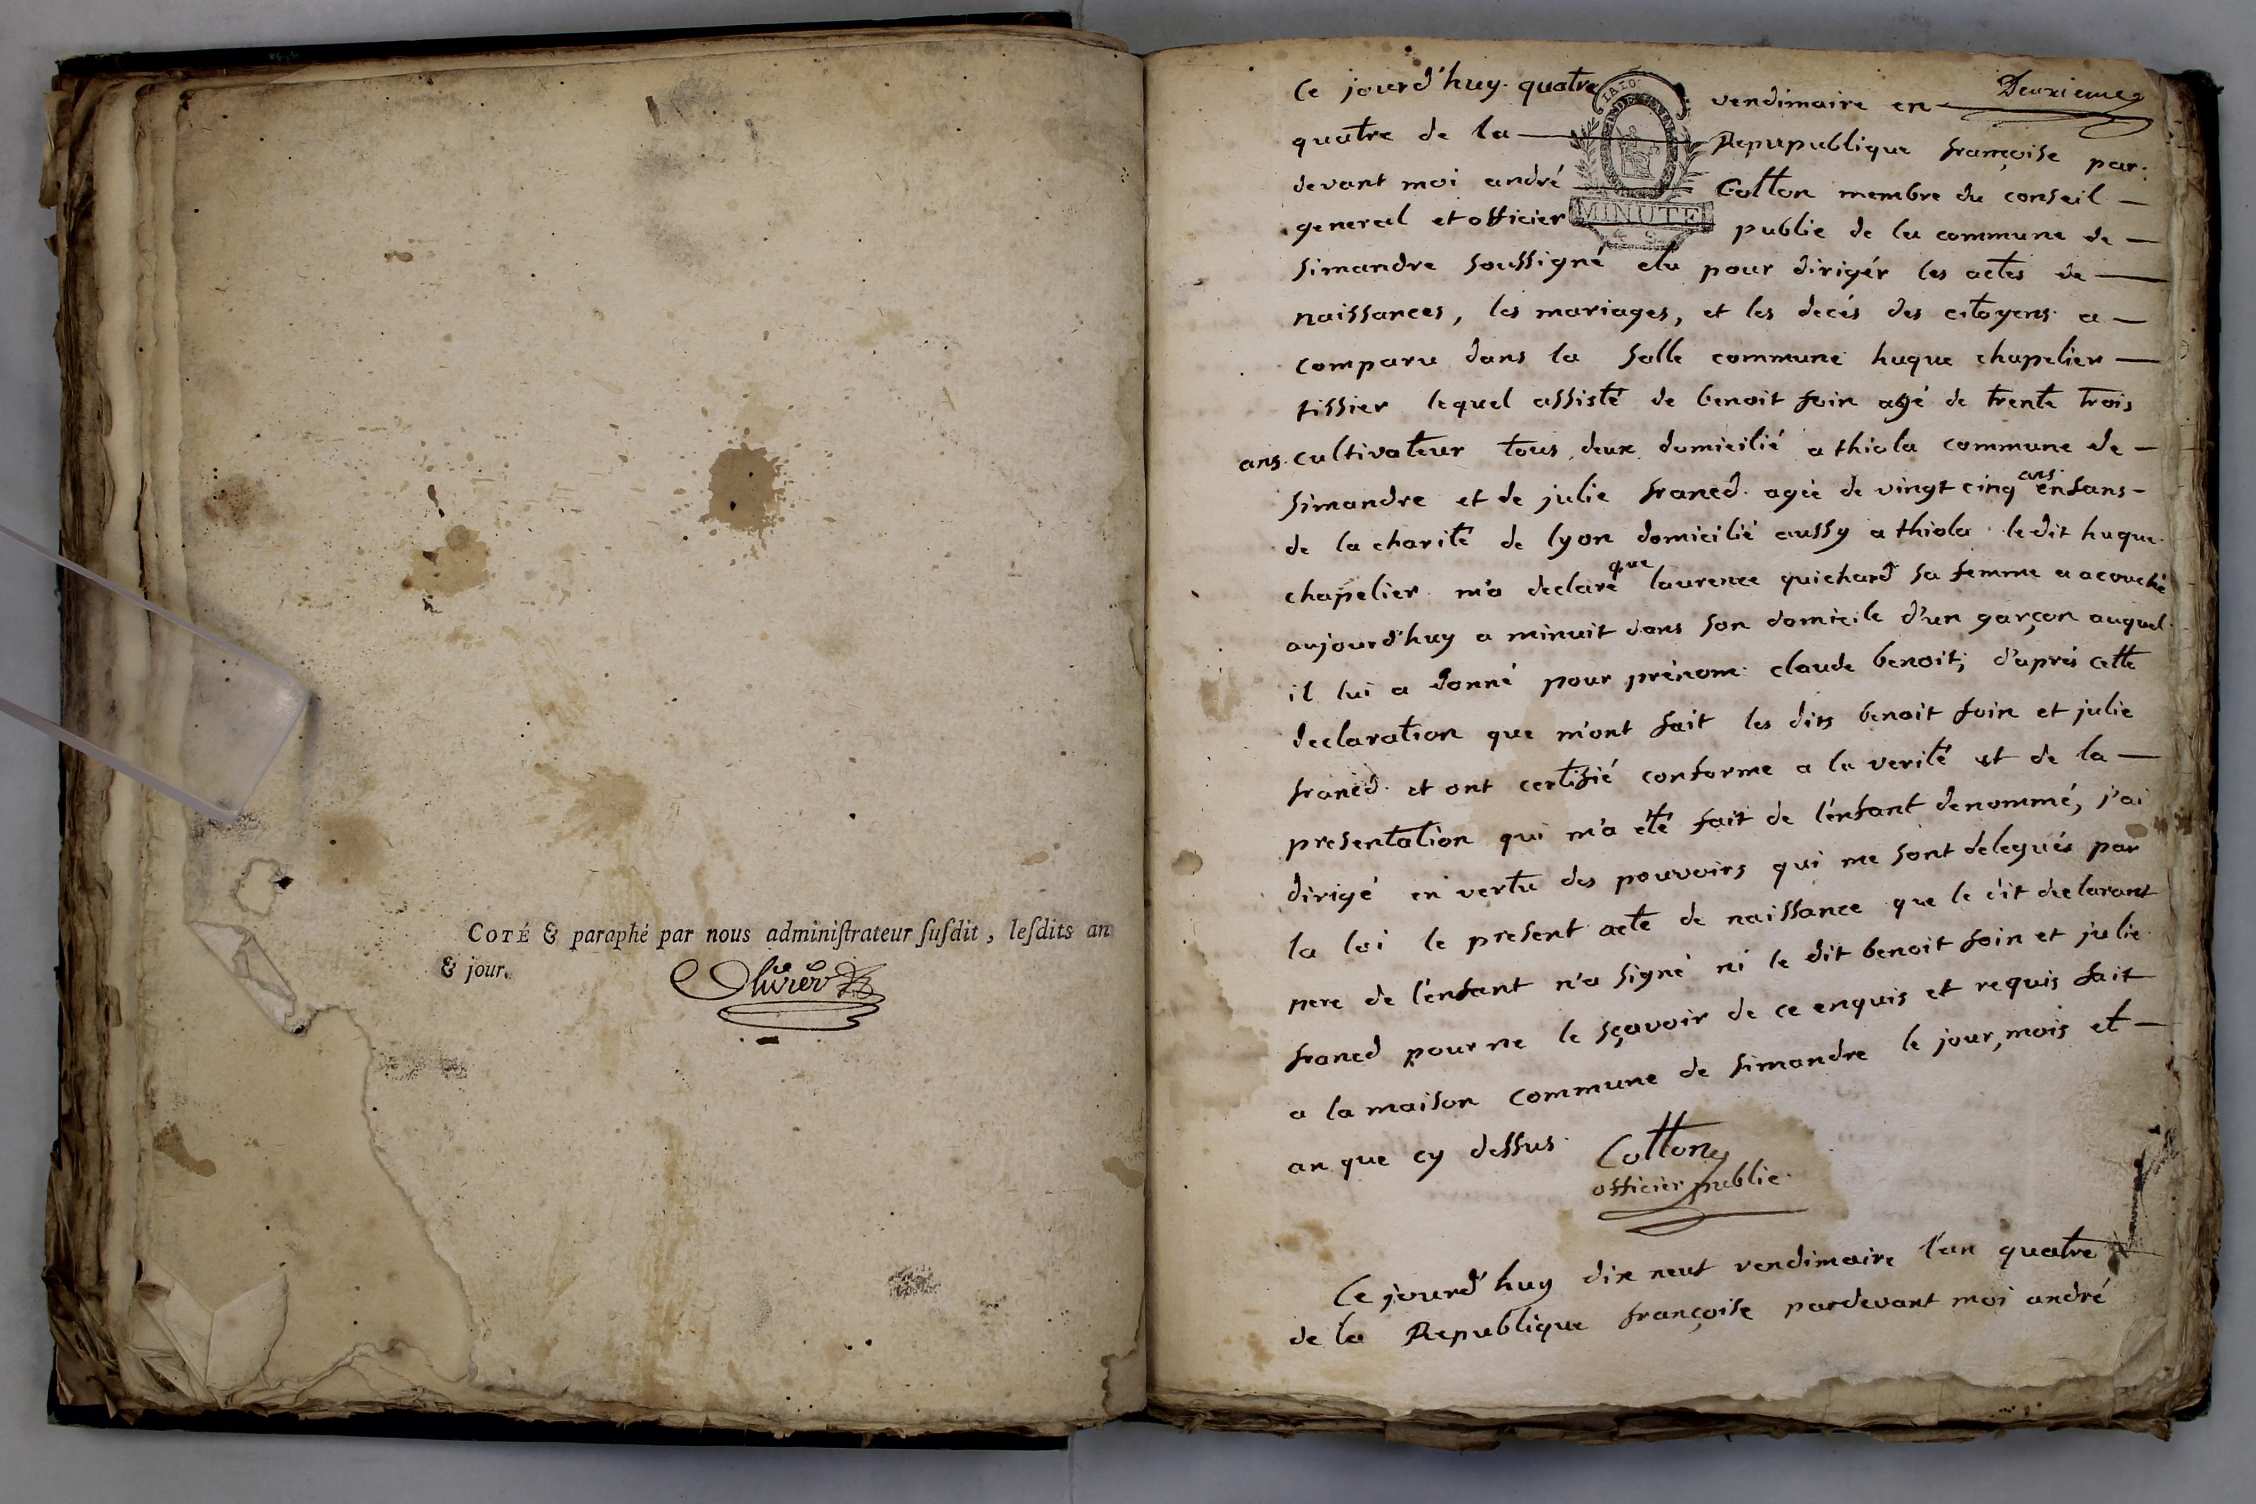 COTÉ & paraphé par nous adminiſtrateur ſuſdit, leſdits an
& jour.
Olivier
Deuxieme
Ce jourd'huy quatre vendimaire en
quatre de la Repupublique françoise par
devant moi andré Cotton membre du conseil
general et officier public de la commune de
MINUTE
simandre soussigné elu pour dirigér les actes de
naissances, les mariages, et les decés des citoyens a
comparu dans la salle commune hugue chapelier
tissier lequel assisté de benoit foin agé de trente trois
ans cultivateur tous deux domicilié a thiola commune de
simandre et de julie franed agée de vingt cinq ans enfans
de la charité de lyon domicilié aussy a thiola le dit hugue
chapelier m'a declaré que laurence guichard sa femme a acouché
aujourd'huy a minuit dans son domicile d'un garçon auquel
il lui a donné pour prénom claude benoit; d'aprés cette
declaration que m'ont fait les dits benoit foin et julie
franed et ont certifié conforme a la verité et de la
presentation qui m'a été fait de l'enfant denommé, j'ai
dirigé en vertu des pouvoirs qui me sont delegués par
la loi le present acte de naissance que le dit declarant
pere de l'enfant n'a signé ni le dit benoit foin et julie
franed pour ne le sçavoir de ce enquis et requis fait
a la maison commune de simandre le jour, mois et
an que cy dessus
Cotton
officier public
Ce jourd'huy dix neuf vendimaire l'an quatre
de la Republique françoise pardevant moi andré